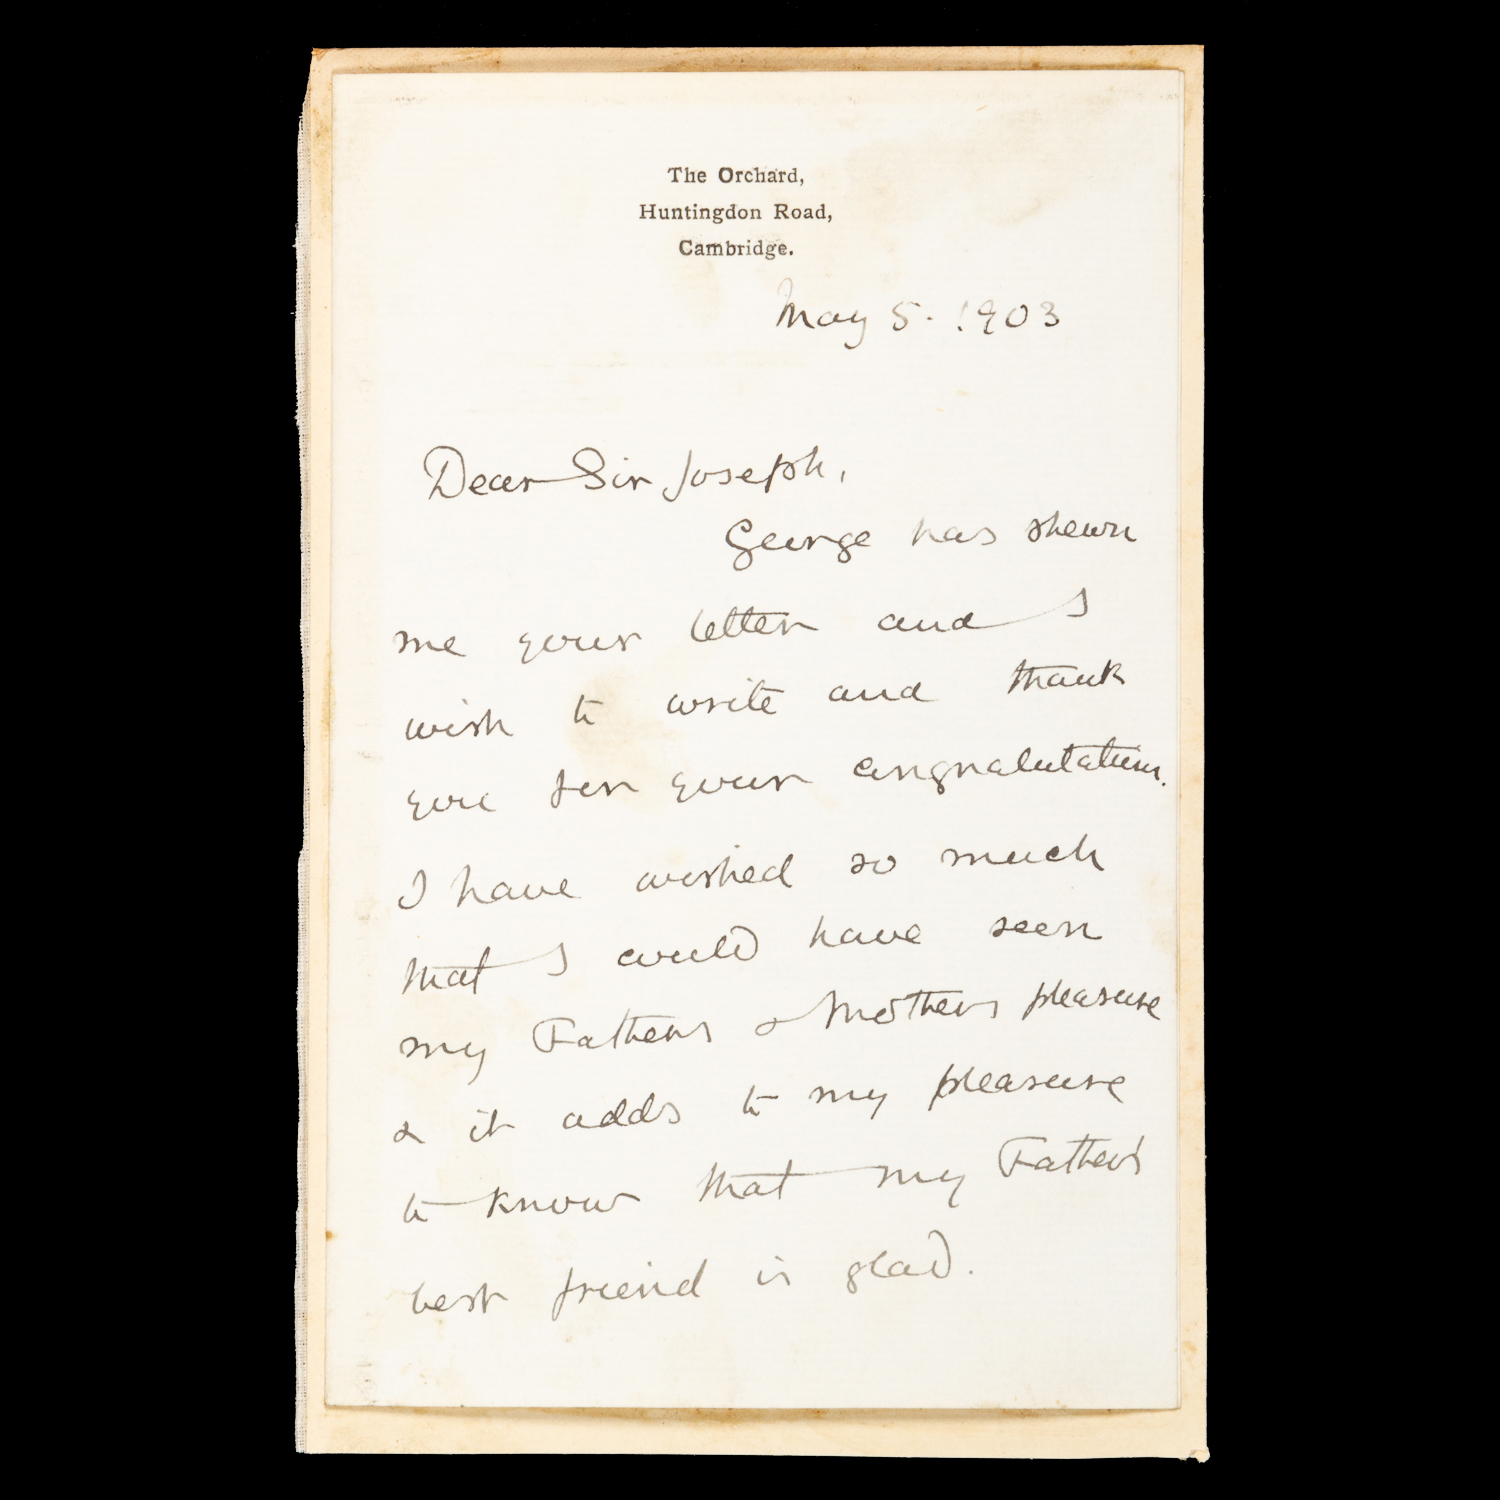 The Orchard,
Huntingdon Road,
Cambridge.
May 5. 1903
Dear Sir Joseph,
George has shewn
me your letter and I
wish to write and thank
you for your congratulation.
I have wished so much
that I could have seen
my Fathers & Mothers pleasure
& it adds to my pleasure
to know that my Father's
best friend is glad.